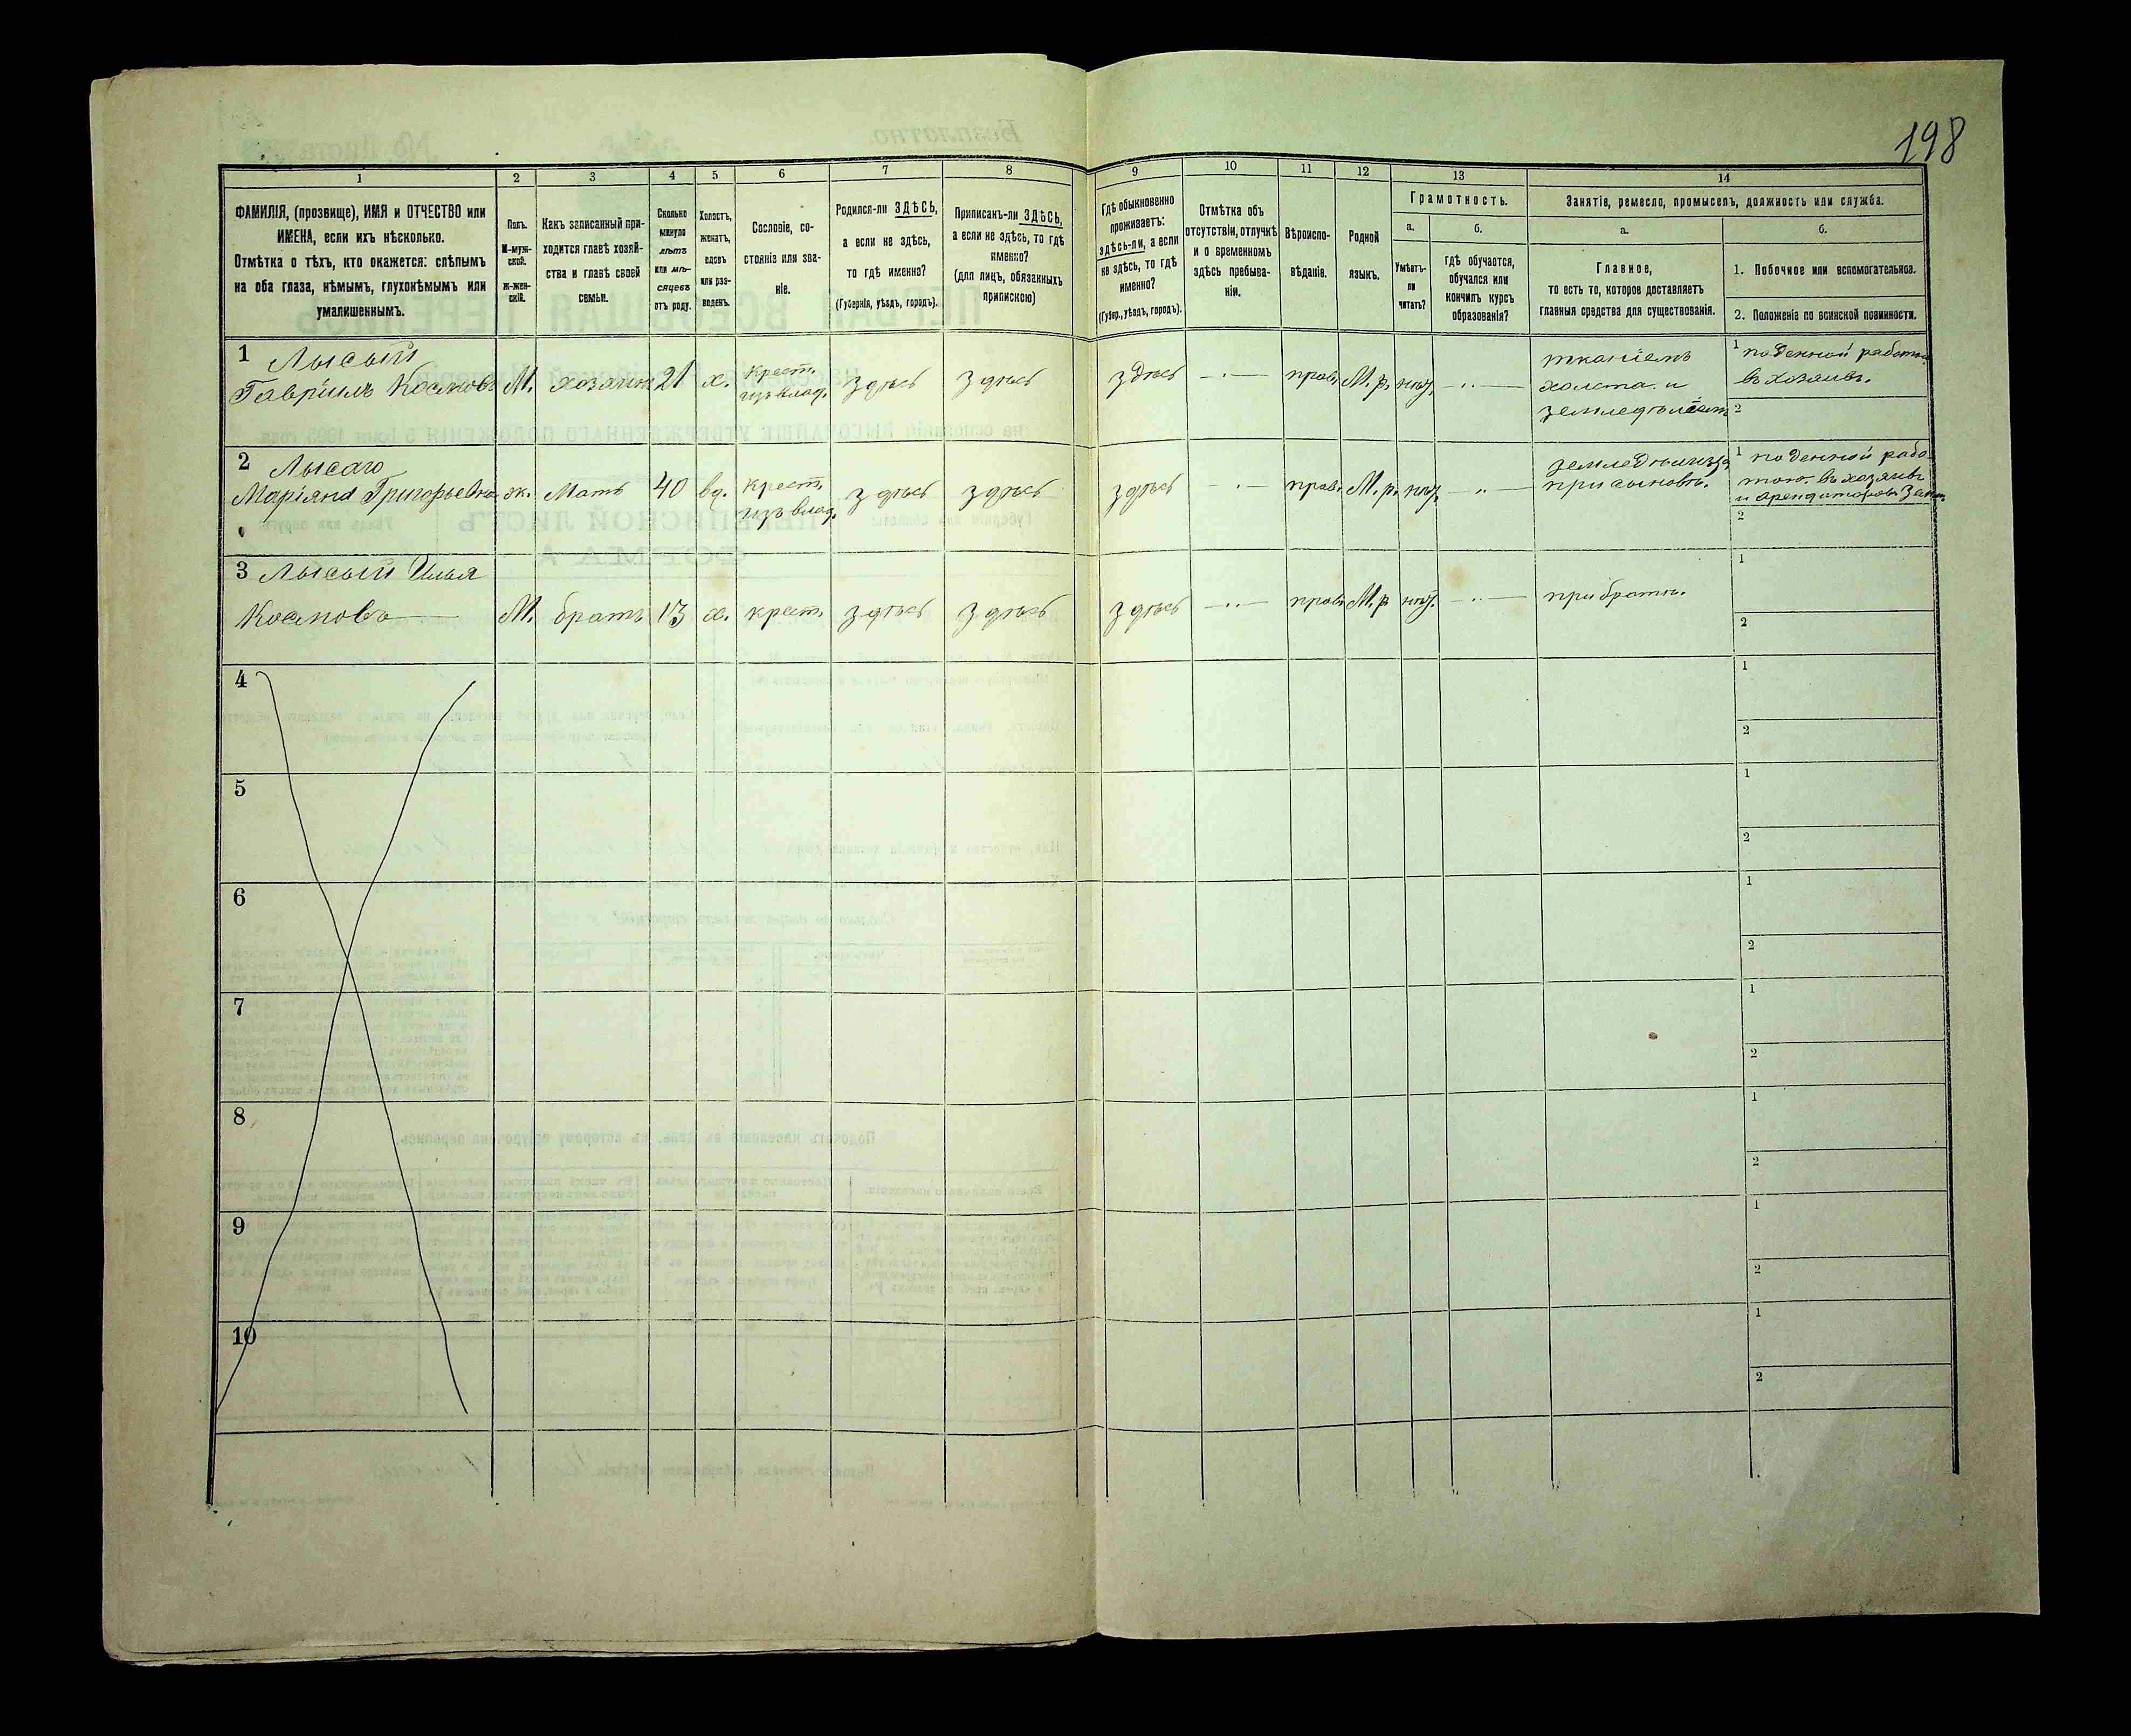 198
1
2
3
4
5
6
7
8
9
10
11
12
13
14
ФАМИЛІЯ, (прозвище), ИМЯ и ОТЧЕСТВО или
ИМЕНА, если ихъ нѣсколько.
Отмѣтка о тѣхъ, кто окажется: слѣпымъ
на оба глаза, нѣмымъ, глухонѣмымъ или
умалишеннымъ.
Полъ.
М-муж-
ской.
ж-жен-
скій.
Какъ записанный при-
ходится главѣ хозяй-
ства и главѣ своей
семьи.
Сколько
минуло
лѣтъ
или мѣ-
сяцевъ
отъ роду.
Холостъ,
женатъ,
вдовъ
или раз-
веденъ.
Сословіе, со-
стояніе или зва-
ніе.
Родился-ли ЗДѢСЬ,
а если не здѣсь,
то гдѣ именно?
(Губернія, уѣздъ, городъ).
Приписанъ-ли ЗДѢСЬ,
а если не здѣсь, то гдѣ
именно?
(для лицъ, обязанныхъ
припискою)
Гдѣ обыкновенно
проживаетъ:
здѣсь-ли, а если
не здѣсь, то гдѣ
именно?
(Губер., уѣздъ, городъ).
Отмѣтка объ
отсутствіи, отлучкѣ
и о временномъ
здѣсь пребыва-
ніи.
Вѣроиспо-
вѣданіе.
Родной
языкъ.
Грамотность.
а.
б.
Умѣетъ-
ли
читать?
гдѣ обучается,
обучался или
кончилъ курсъ
образованія?
Занятіе, ремесло, промыселъ, должность или служба.
а.
б.
Главное,
то есть то, которое доставляетъ
главныя средства для существованія.
1. Побочное или вспомогательное.
2. Положеніе по воинской повинности.
1 Лысый
Гавріилъ Космовъ М. хозяинъ 21 х. крест. изъ влад. здѣсь здѣсь здѣсь —··— прав. М.р. нѣт. —··—
тканіемъ
холста и
земледѣліемъ
1 поденной работой
въ хозяивъ.
2
2 Лысаго
Маріяна Григорьевна ж. Мать 40 вд. крест. изъ влад. здѣсь здѣсь здѣсь —··— прав. М.р. нѣт. —··—
при сыновѣ.
1 поденной рабо
тою въ хозяивъ
и арендаторовъ
2
3 Лысый Илья
Космовъ М. братъ 13 х. крест. здѣсь здѣсь здѣсь —··— прав. М.р. нѣт. —··— при братѣ.
1
2
4
1
2
5
1
2
6
1
2
7
1
2
8
1
2
9
1
2
10
1
2